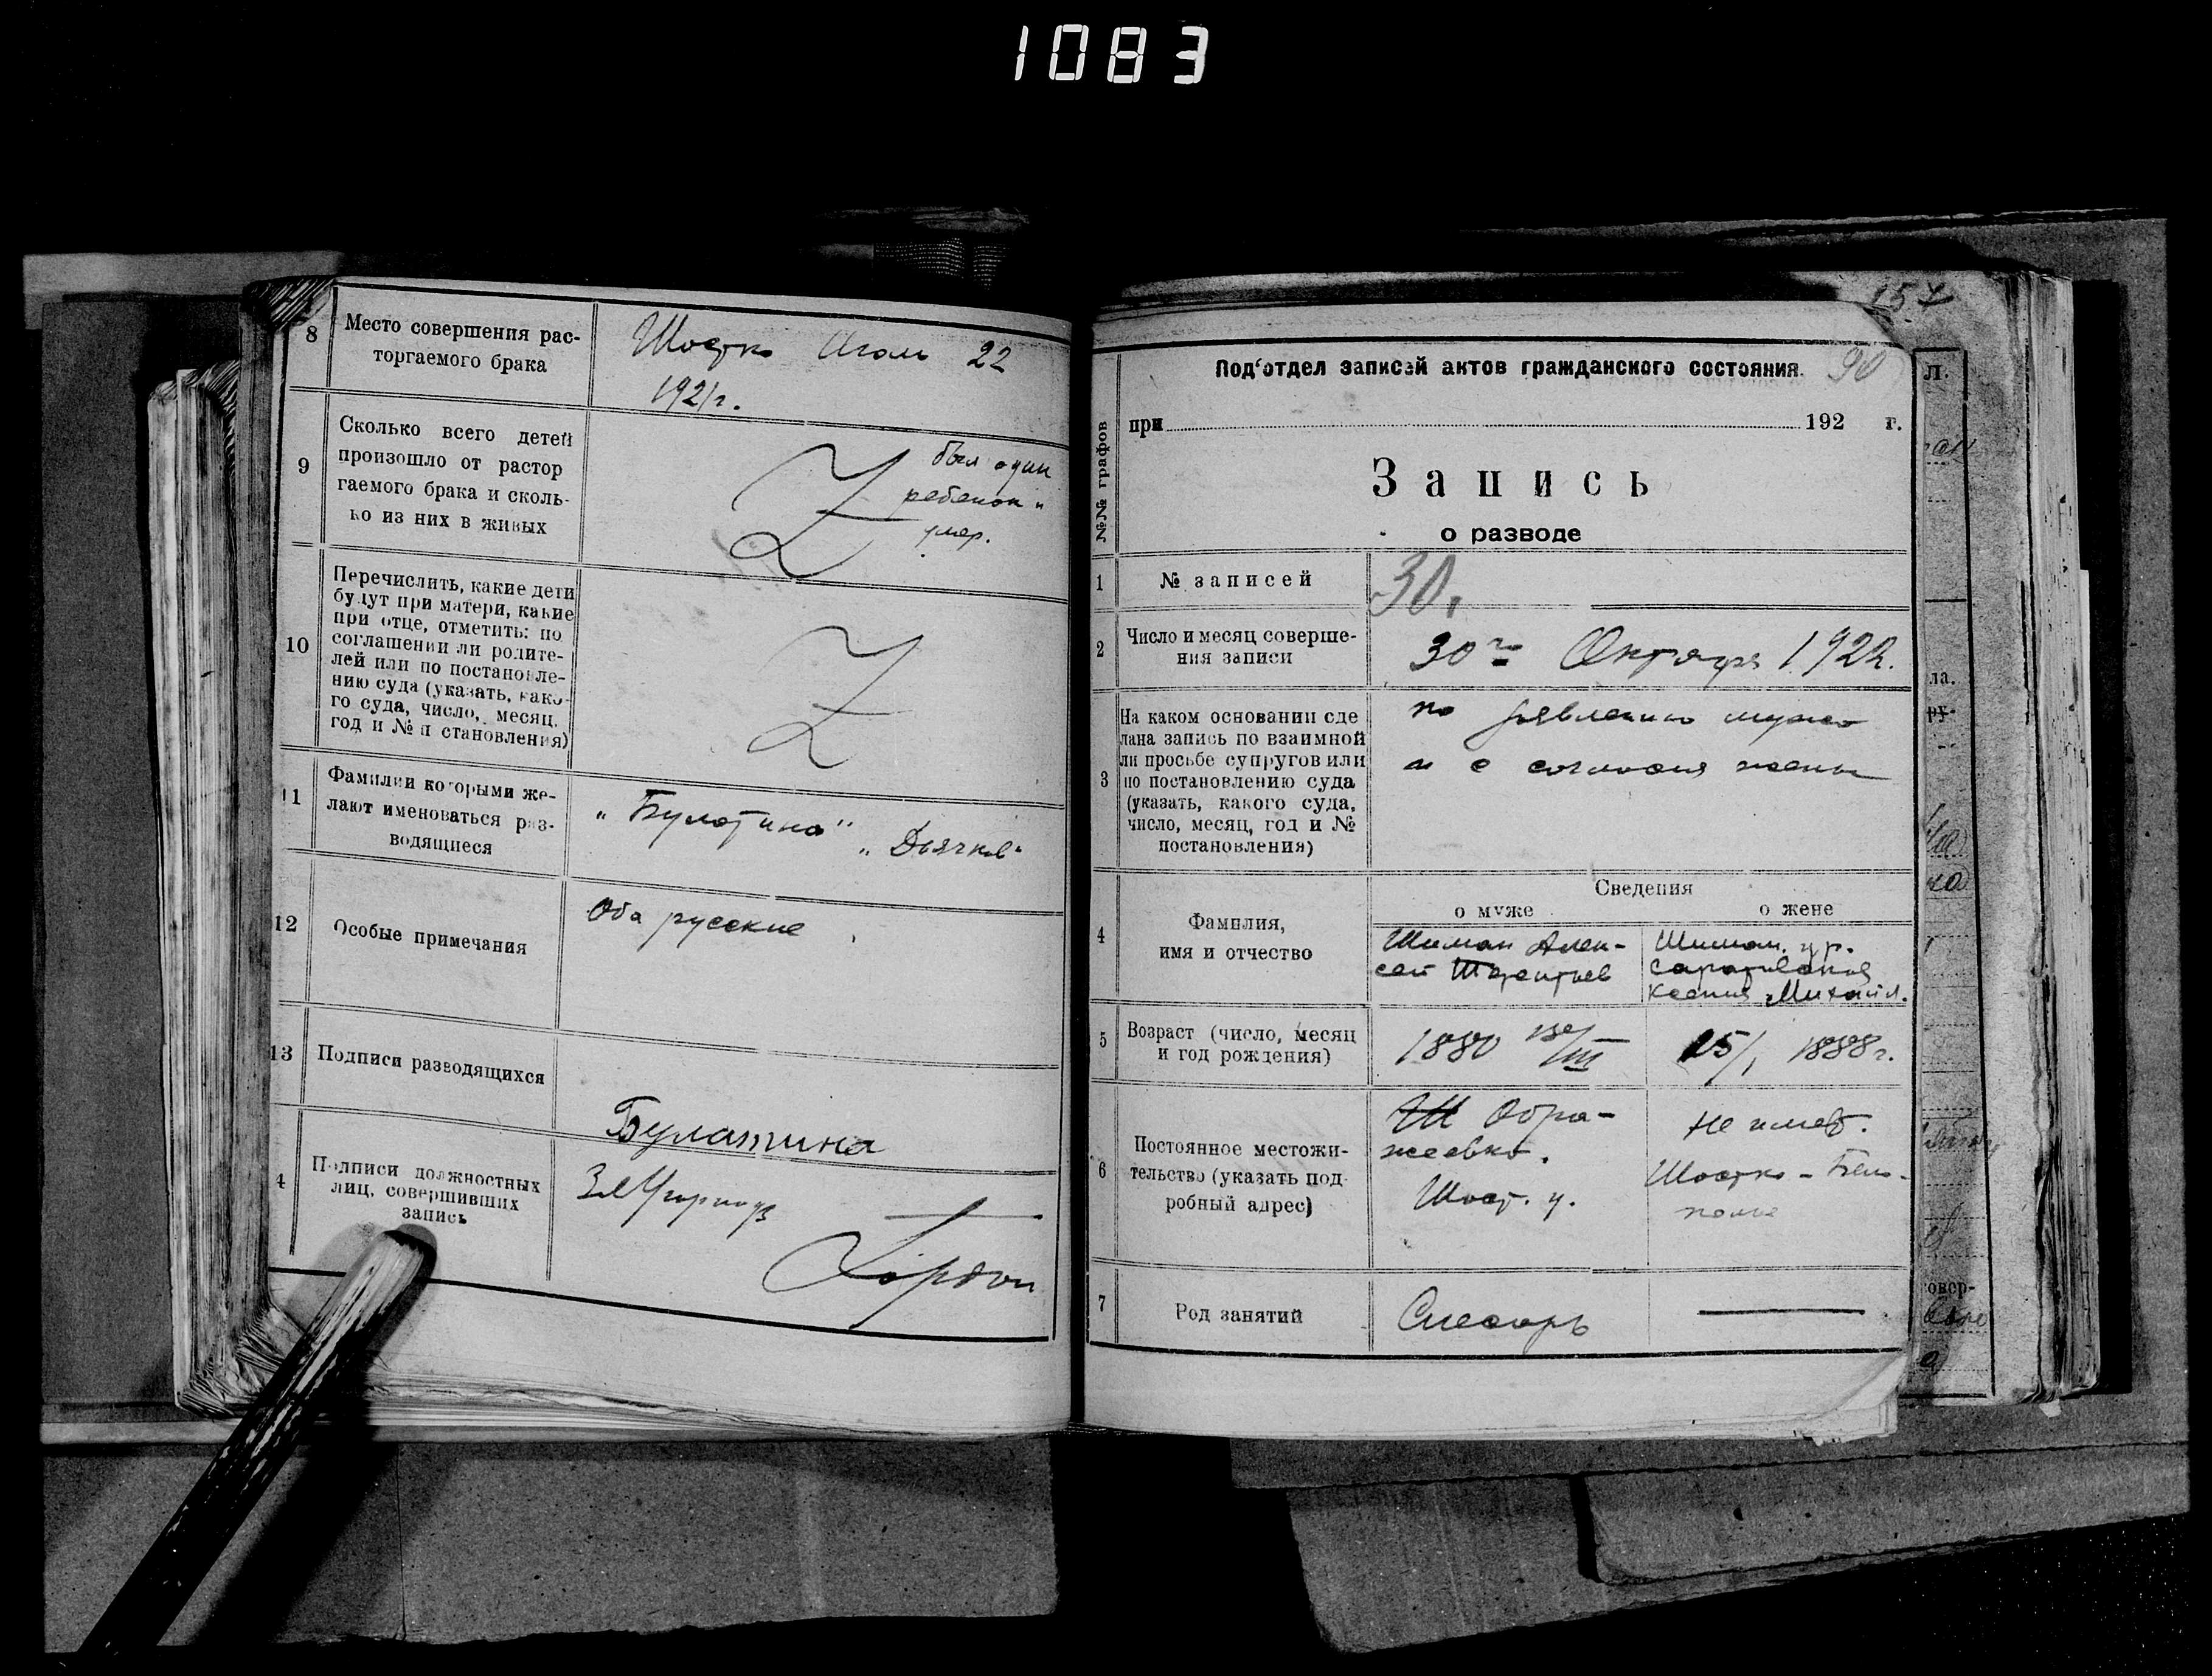 1083
8
Место совершения рас-
торгаемого брака
Шостка 22
1921 г.
9
Сколько всего детей
произошло от растор
гаемого брака и сколь-
ко из них в живых
был один
ребенок и
умер.
10
Перечислить, какие дети
будут при матери, какие
при отце, отметить: по
соглашении ли родите-
лей или по постановле-
нию суда (указать, како-
го суда, число, месяц,
год и № п становления)
11
Фамилии которыми же-
лают именоваться раз-
водящиеся
„Булатина" „Дьячков"
12
Особые примечания
Оба русские
13
Подписи разводящихся
Булатина
4
Подписи должностных
лиц, совершивших
запись
Гордон
157
Под'отдел записей актов гражданского состояния.
90
№№ графов
при 192 г.
Запись
о разводе
1
№ записей
30.
2
Число и месяц соверше-
ния записи
30го Октября 1922.
3
На каком основании сде
лана запись по взаимной
ли просьбе супругов или
по постановлению суда
(указать, какого суда,
число, месяц, год и №
постановления)
по заявлению мужа
и с согласия жены
4
Фамилия,
имя и отчество
Сведения
о муже
о жене
Шиман Алек-
сей Терентьев
Шиман. ур.
Ксения Михайл.
5
Возраст (число, месяц
и год рождения)
1880 /III
15/I 1888 г.
6
Постоянное местожи-
тельство (указать под-
робный адрес)
Обра-
жеевка.
Шост. у.
Не имеет.
Шостка -
7
Род занятий
Слесарь
л.
ла.
ру-
овер-